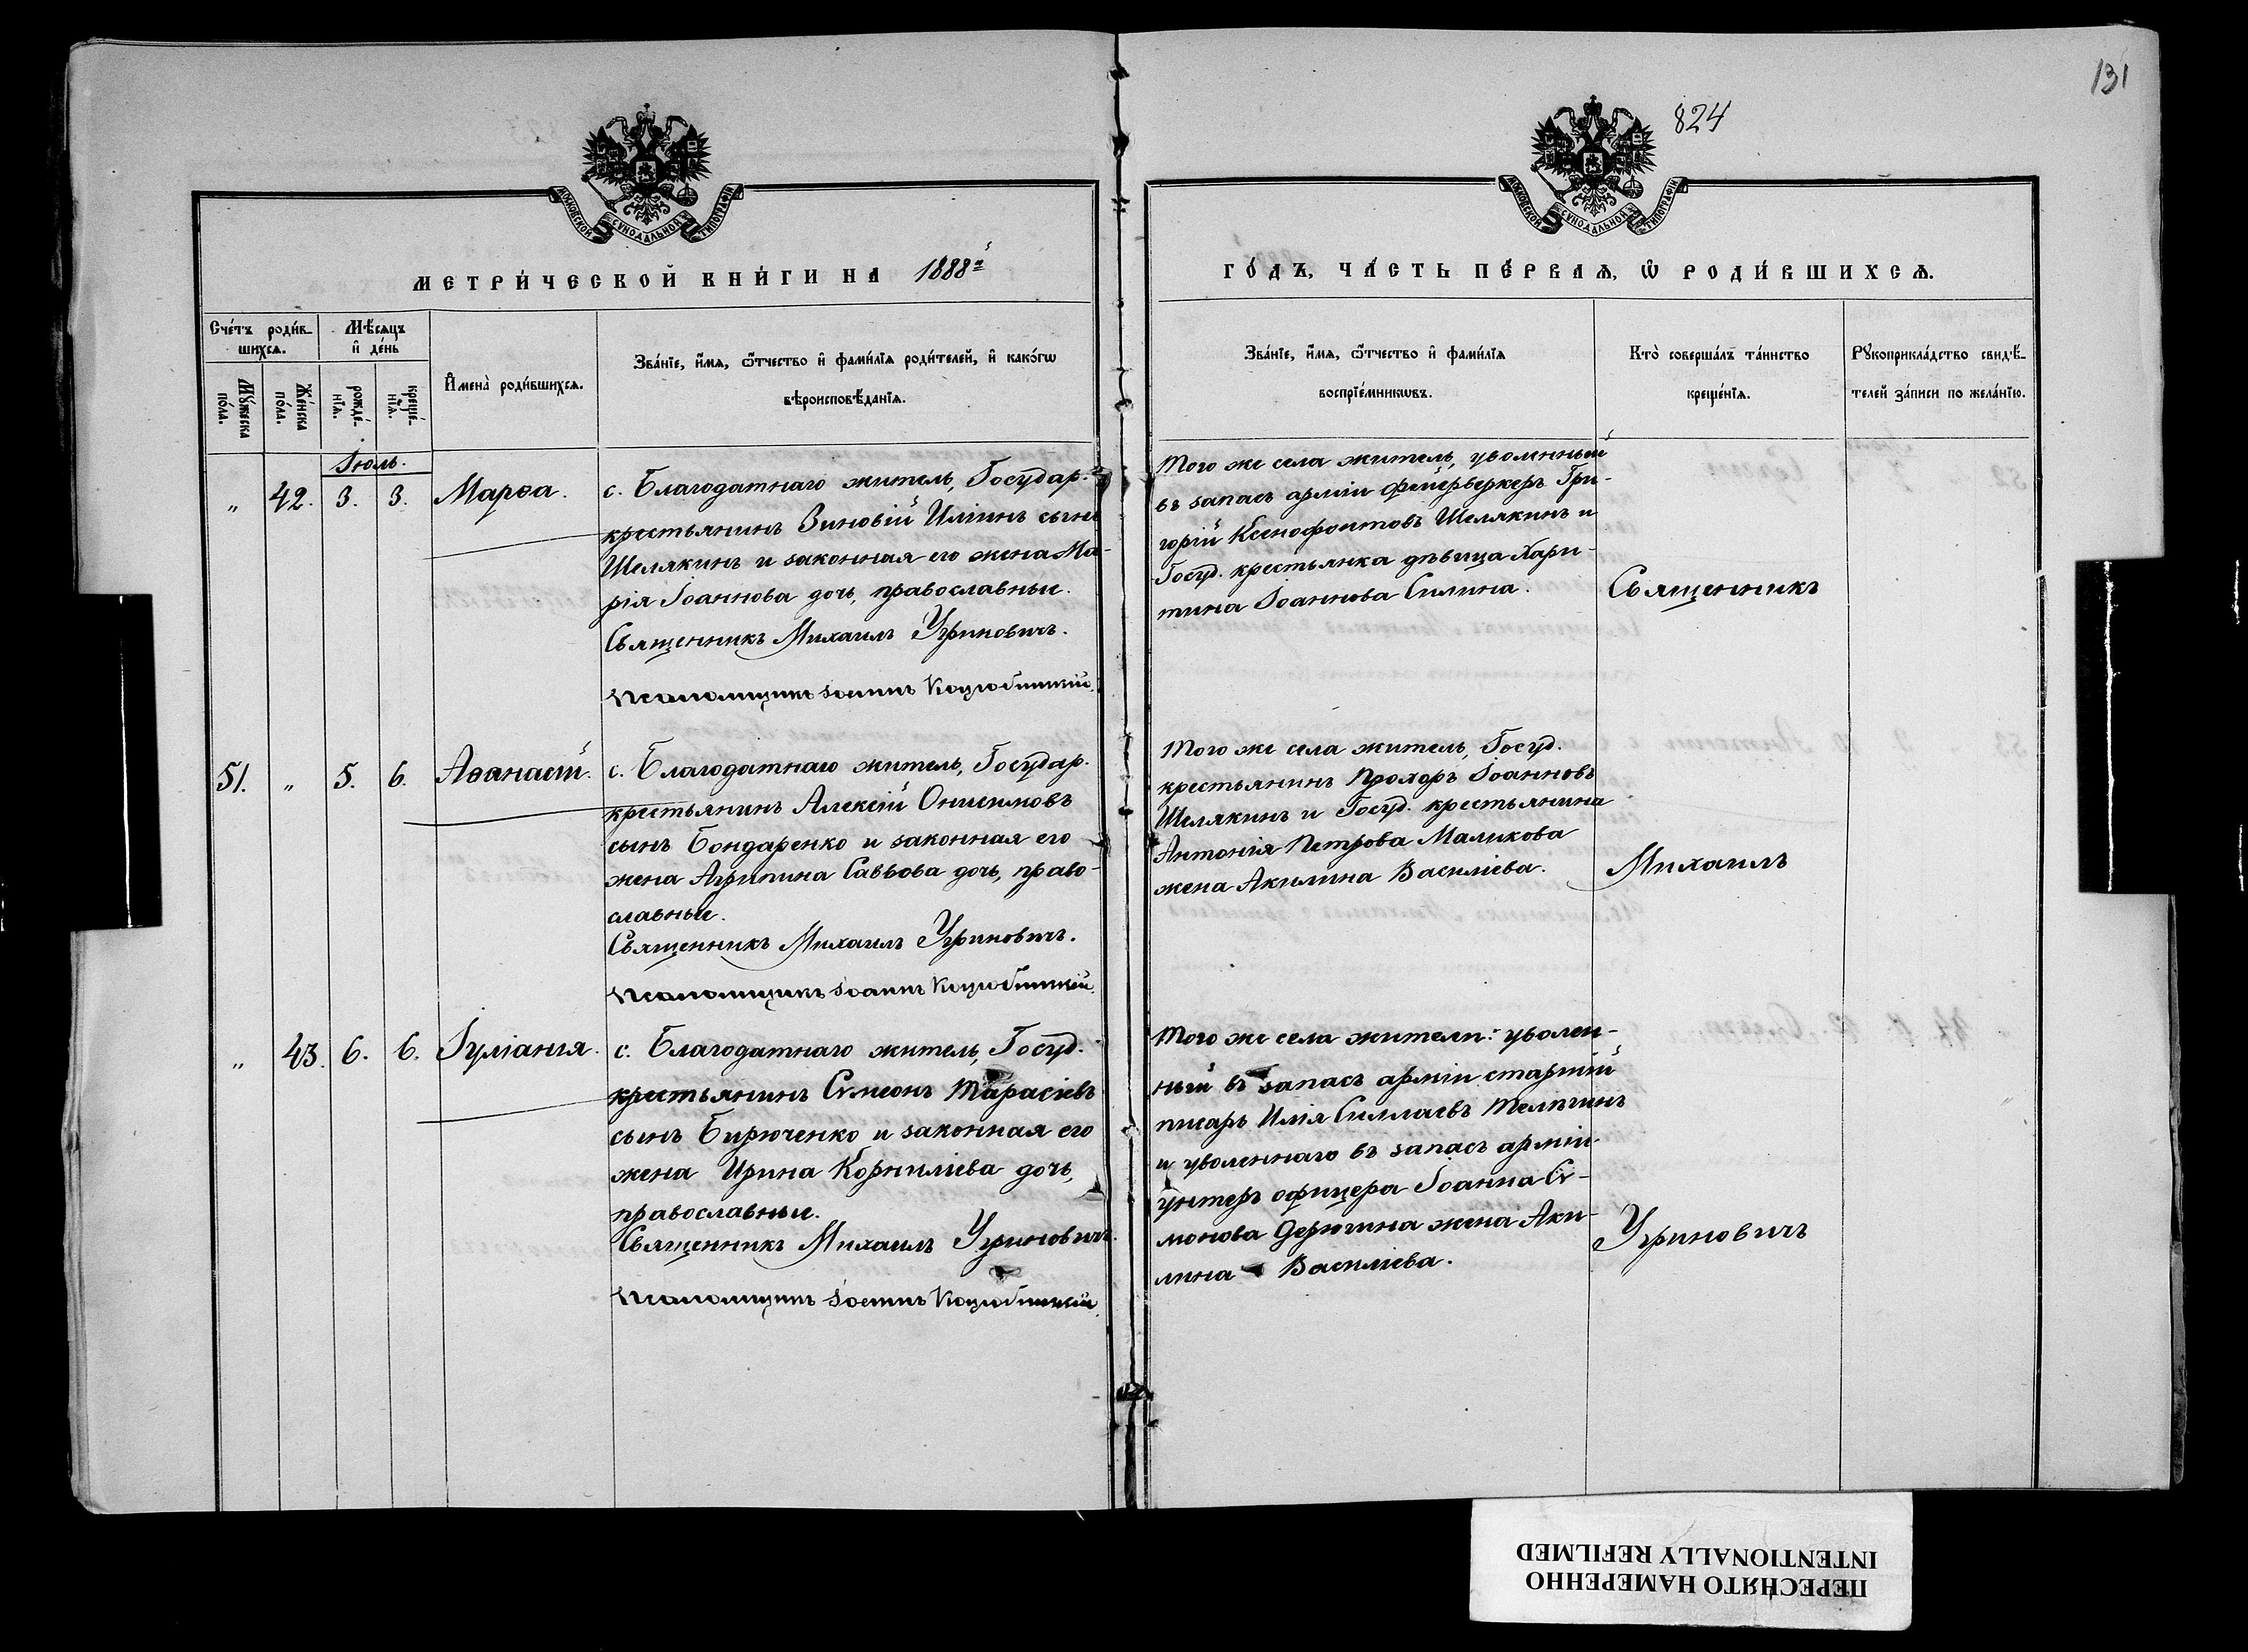 131
824
МОСКОВСКОЙ СѴНОДАЛЬНОЙ ТИПОГРАФІИ
МОСКОВСКОЙ СѴНОДАЛЬНОЙ ТИПОГРАФІИ
МЕТРИ́ЧЕСКОЙ КНИ́ГИ НА 1888й
ГО́ДЪ, ЧА́СТЬ ПЕ́РВАѦ, Ѡ҆ РОДИ́ВШИХСѦ.
Сче́тъ роди́в-
шихсѧ.
Мꙋ́жеска
по́ла.
Же́нска
по́ла.
Мѣ́сѧцъ
и҆ де́нь
рожде́-
нїѧ.
креще́-
нїѧ.
И҆мена̀ роди́вшихсѧ.
Зва́нїе, и҆́мѧ, ѻ҆́тчество и҆ фами́лїѧ роди́телей, и҆ како́гѡ
вѣроисповѣ́данїѧ.
Зва́нїе, и҆́мѧ, ѻ҆́тчество и҆ фами́лїѧ
воспрїе́мникѡвъ.
Кто̀ соверша́лъ та́инство
креще́нїѧ.
Рꙋкоприкла́дство свидѣ́-
телей за́писи по жела́нїю.
Іюль.
„ 42. 3. 3. Марѳа.
с. Благодатнаго житель, Государ.
крестьянинъ Зиновій Иліинъ сынъ
Шелякинъ и законная его жена Ма-
рія Іоаннова дочь, православные.
Священникъ Михаилъ Угриновичъ.
Псаломщикъ Іоаннъ Коцюбинскій.
Того же села житель, уволенный
въ запасъ арміи фейерверкеръ Гри-
горій Ксенофонтовъ Шелякинъ и
Госуд. крестьянка дѣвица Хари-
тина Іоаннова Силина.
Священникъ
51. „ 5. 6. Аѳанасій.
с. Благодатнаго житель, Государ.
крестьянинъ Алексій Онисимовъ
сынъ Бондаренко и законная его
жена Агрипина Саввова дочь, право-
славные.
Священникъ Михаилъ Угриновичъ.
Псаломщикъ Іоаннъ Коцюбинскій.
Того же села житель, Госуд.
крестьянинъ Прохоръ Іоанновъ
Шелякинъ и Госуд. крестьянина
Антонія Петрова Маликова
жена Акилина Василіева.
Михаилъ
„ 43. 6. 6. Іуліанія.
с. Благодатнаго житель, Госуд.
крестьянинъ Сѵмеонъ Тарасіевъ
сынъ Бирюченко и законная его
жена Ирина Корниліева дочь,
православные.
Священникъ Михаилъ Угриновичъ.
Псаломщикъ Іоаннъ Коцюбинскій.
Того же села жители: уволен-
ный въ запасъ арміи старшій
писарь Илія Силлаевъ Телѣгинъ
и уволеннаго въ запасъ арміи
унтеръ офицера Іоанна Сѵ-
монова Дерюгина жена Аки-
лина Василіева.
Угриновичъ
ПЕРЕСНЯТО НАМЕРЕННО
INTENTIONALLY REFILMED